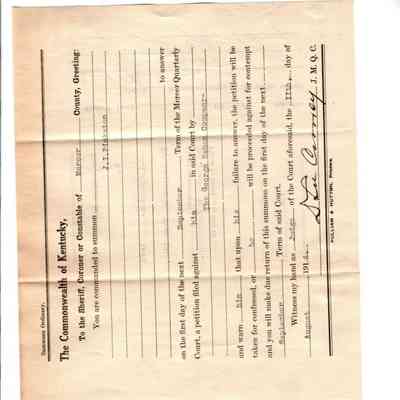 Summons Ordinary.
The Commonwealth of Kentucky,
To the Sheriff, Coroner or Constable of Mercer County, Greeting:
You are commanded to summon
J.I.Pinkston
to answer
on the first day of the next September Term of the Mercer Quarterly
Court, a petition filed against him in said Court by
The George Company-
and warn him that upon his failure to answer, the petition will be
taken for confessed, or he will be proceeded against for contempt
and you will make due return of this summons on the first day of the next
September Term of said Court.
Witness my hand as Judge of the Court aforesaid, the 11th, day of
August, 191
J. M. Q. C.
PULLIAM & NUTTING, PRINTERS